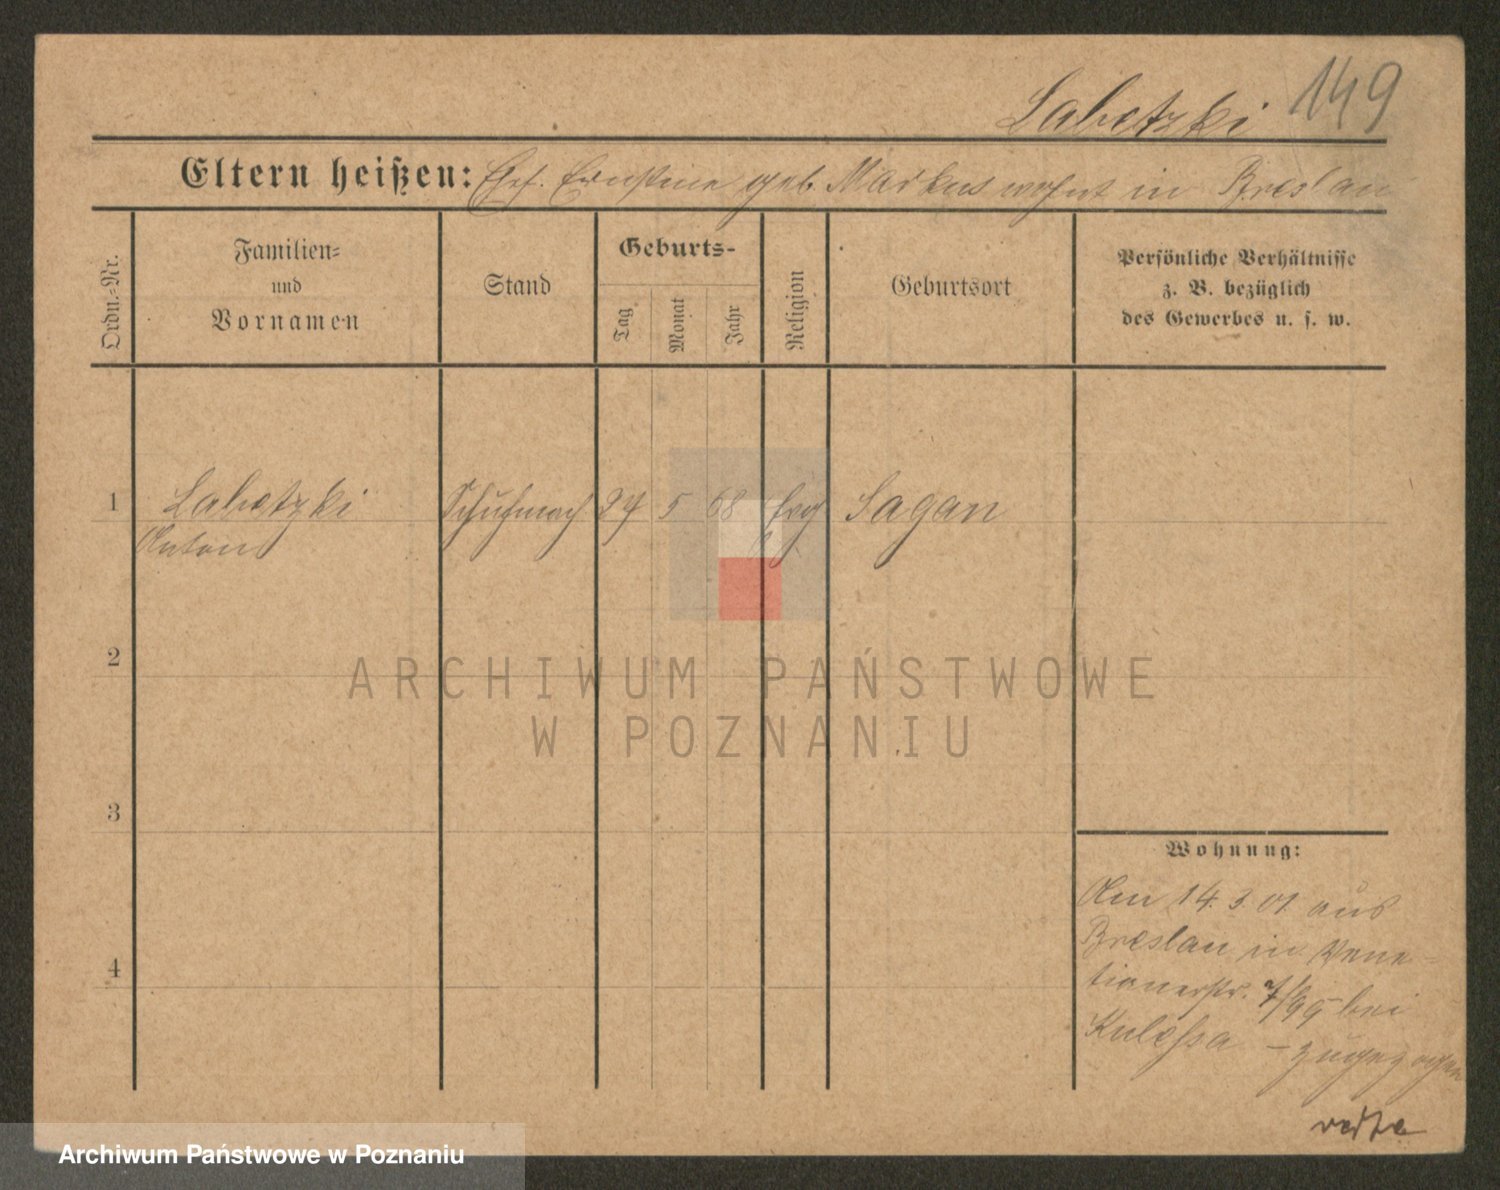 Labetzki 149
Eltern heißen: Ehef. Ernstine geb. Markus wohnt in Breslau
Ordn.-Nr.
Familien-
und
Vornamen
Stand
Geburts-
Tag
Monat
Jahr
Religion
Geburtsort
Persönliche Verhältnisse
z. B. bezüglich
des Gewerbes u. s. w.
1 Labetzki Schuhmach 24 5 68 evg Sagan
Anton
2
3
4
Wohnung:
Am 14. 3. 01. aus
Breslau in Vene-
tianerstr. bei
Kulessa – zugezogen
ARCHIWUM PAŃSTWOWE
W POZNANIU
Archiwum Państwowe w Poznaniu